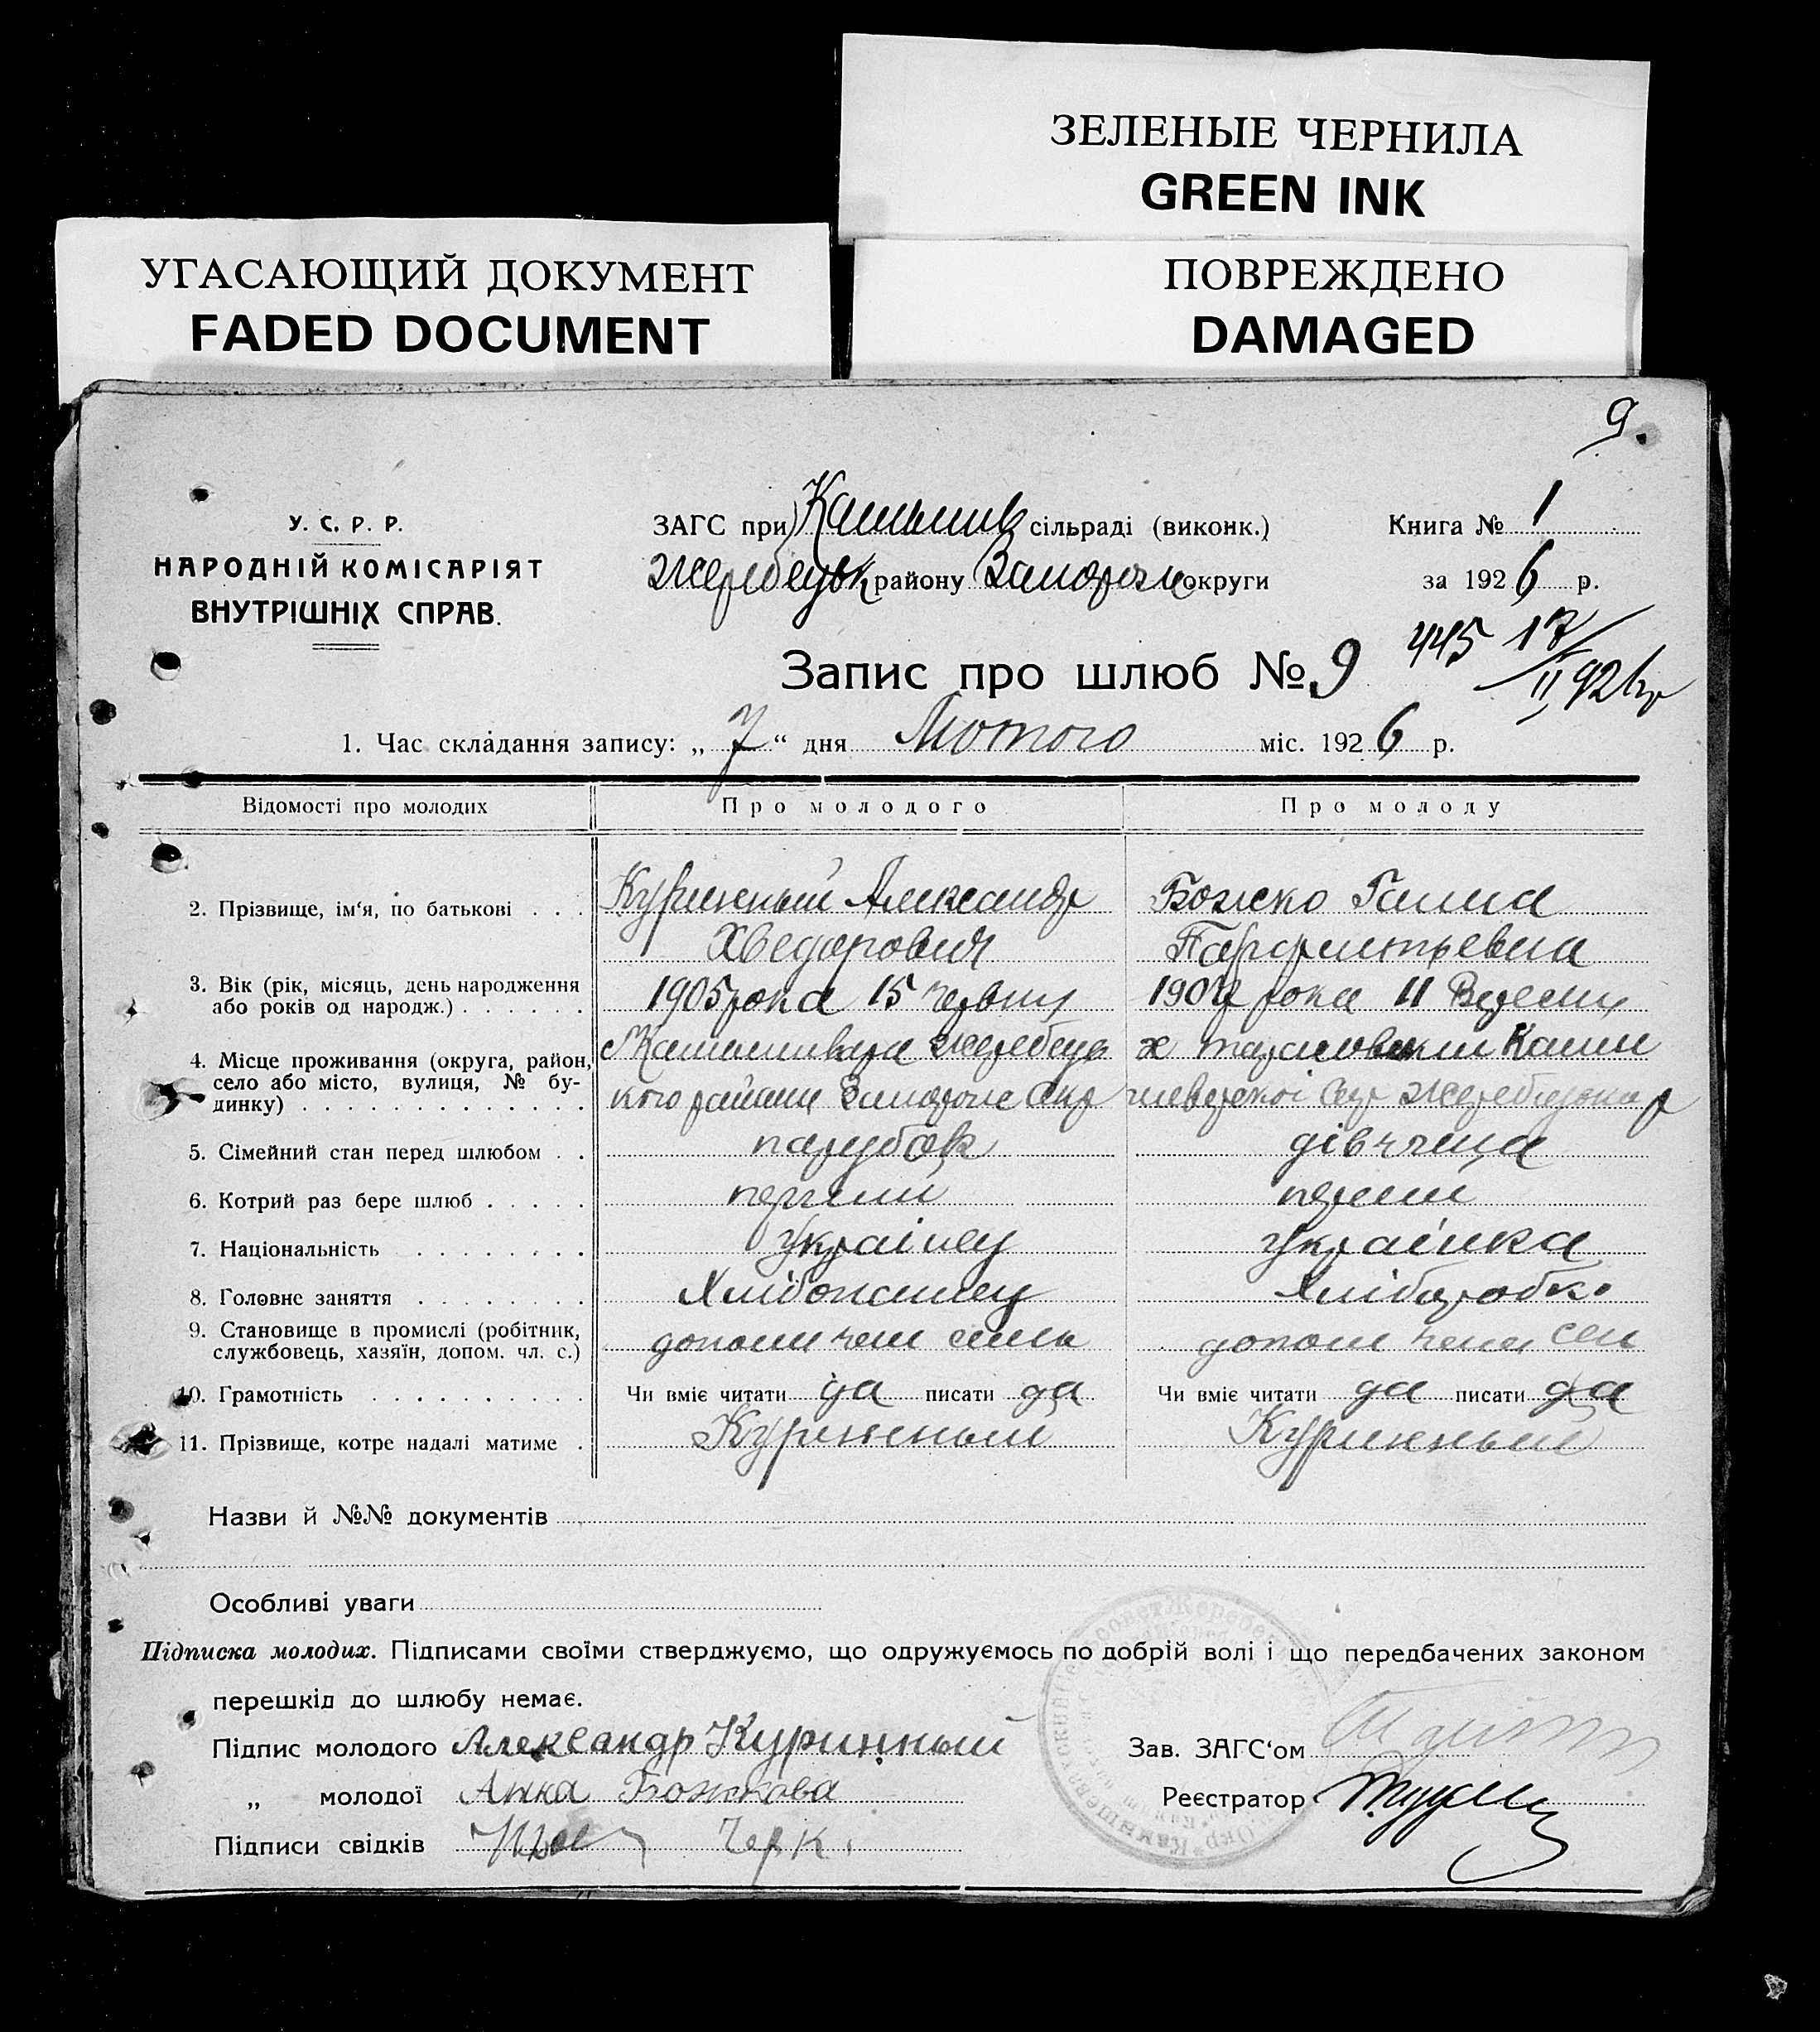 ЗЕЛЕНЫЕ ЧЕРНИЛА
GREEN INK
УГАСАЮЩИЙ ДОКУМЕНТ
FADED DOCUMENT
ПОВРЕЖДЕНО
DAMAGED
9.
У. С. Р. Р.
НАРОДНІЙ КОМІСАРІЯТ
ВНУТРІШНІХ СПРАВ.
ЗАГС при сільраді (виконк.)
Жеребецьк району Запорож округи
Книга № 1
за 1926 р.
Запис про шлюб № 9
445 17/II 926 г
1. Час складання запису: „ 7 “ дня Лютого міс. 1926 р.
Відомості про молодих Про молодого Про молоду
2. Прізвище, ім‘я, по батькові . . . Куринный Александр Божко Ганна
Хведорович Парфентьевна
3. Вік (рік, місяць, день народження
або років од народж.) . . . . . . 1905 рока 15 Червня рока 11 Вересня
4. Місце проживання (округа, район,
село або місто, вулиця, № бу-
динку) . . . . . . . . . . . . . кого района Запорож Окр
5. Сімейний стан перед шлюбом . . парубок дівчина
6. Котрий раз бере шлюб . . . . . перший перший
7. Національність . . . . . . . . Українец Українка
8. Головне заняття . . . . . . . . Хлібопашец Хліборобка
9. Становище в промислі (робітник,
службовець, хазяїн, допом. чл. с.) допом член семь допом член сем
10. Грамотність . . . . . . . . . . Чи вміє читати да писати да Чи вміє читати да писати да
11. Прізвище, котре надалі матиме . Куринный Куринный
Назви й №№ документів
Особливі уваги
Підписка молодих. Підписами своїми стверджуємо, що одружуємось по добрій волі і що передбачених законом
перешкід до шлюбу немає.
Підпис молодого Александр Куринный
Зав. ЗАГС‘ом
„ молодої Анна Божкова
Реєстратор
Підписи свідків